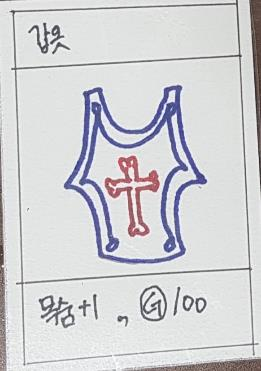 갑옷
목숨+1, Ⓖ100